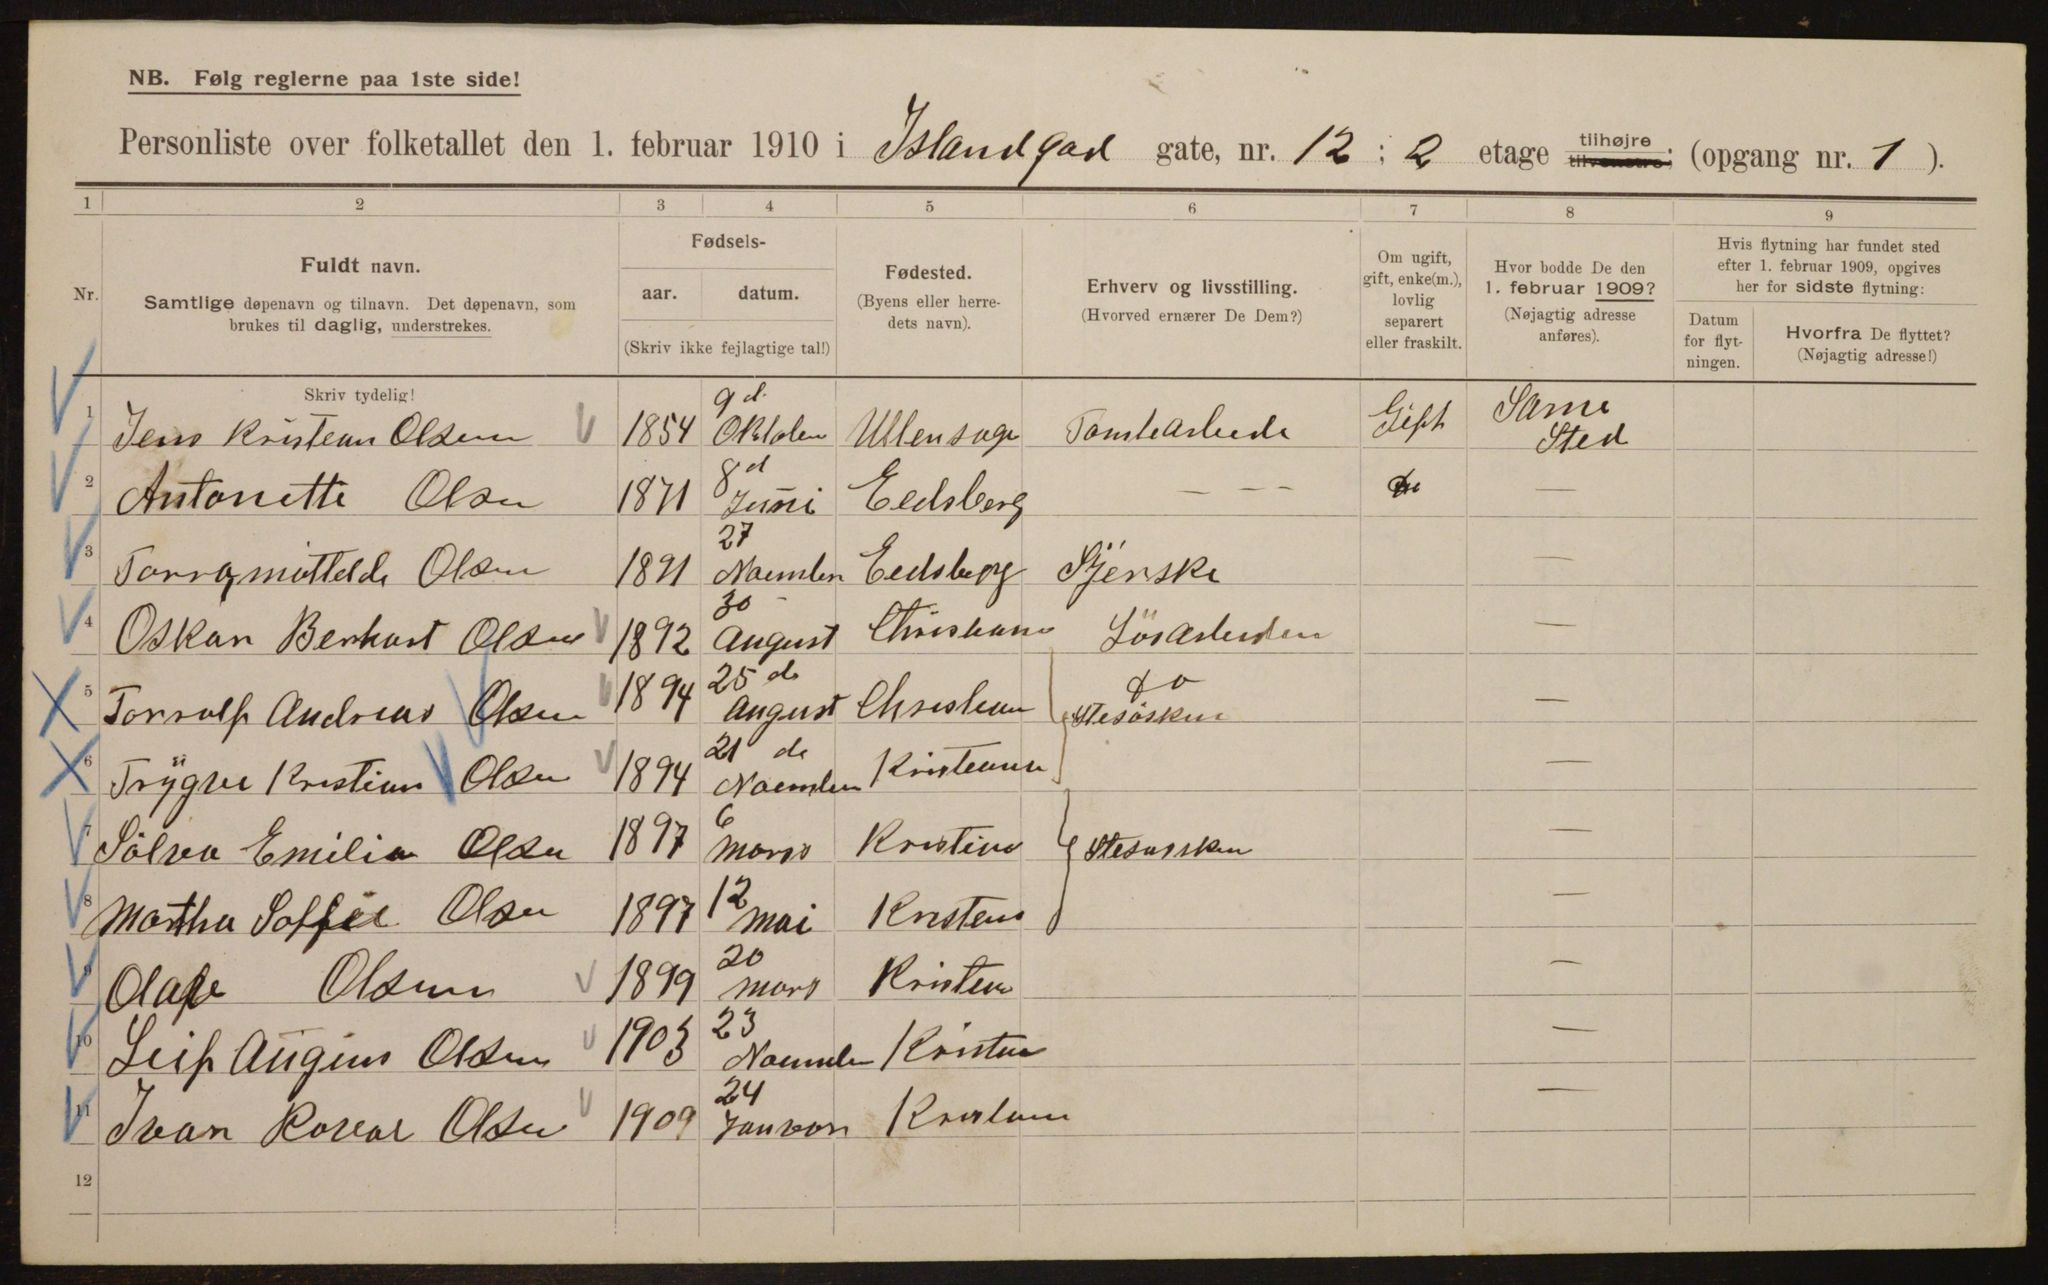 NB. Følg reglerne paa 1ste side!
Personliste over folketallet den 1. februar 1910 i Islandgad gate, nr. 12 ; 2 etage tilhøjre tilvenstre; (opgang nr. 1 ).
1 2 3 4 5 6 7 8 9
Nr.
Fuldt navn.
Samtlige døpenavn og tilnavn. Det døpenavn, som
brukes til daglig, understrekes.
Fødsels-
aar. datum.
(Skriv ikke fejlagtige tal!)
Fødested.
(Byens eller herre-
dets navn).
Erhverv og livsstilling.
(Hvorved ernærer De Dem?)
Om ugift,
gift, enke(m.),
lovlig
separert
eller fraskilt.
Hvor bodde De den
1. februar 1909?
(Nøjagtig adresse
anføres).
Hvis flytning har fundet sted
efter 1. februar 1909, opgives
her for sidste flytning:
Datum
for flyt-
ningen.
Hvorfra De flyttet?
(Nøjagtig adresse!)
Skriv tydelig!
1 Jens Kristean Olsen 1854 9 d. Oktober Ullensage Tomtearbeide Gift Same Sted
2 Antonette Olsen 1871 8 d Juni Eedsberg — — — —
3 Olsen 1891 27 Noember Eedsberg Sÿerske —
4 Oskar Berhart Olsen 1892 30 August Christiane Lösarbeider —
5 Torrolf Andreas Olsen 1894 25 de August Christian do —
6 Trÿgve Kristian Olsen 1894 21 de Noember Kristeana —
7 Sölva Emilia Olsen 1897 6 Mars Kristian —
8 Martha Soffie Olsen 1897 12 Mai Kristens —
9 Olafe Olsen 1899 20 Mars Kristen —
10 Leif Augius Olsen 1903 23 Noember Kristan —
11 Ivar Olsen 1909 24 Januar Kristane —
12